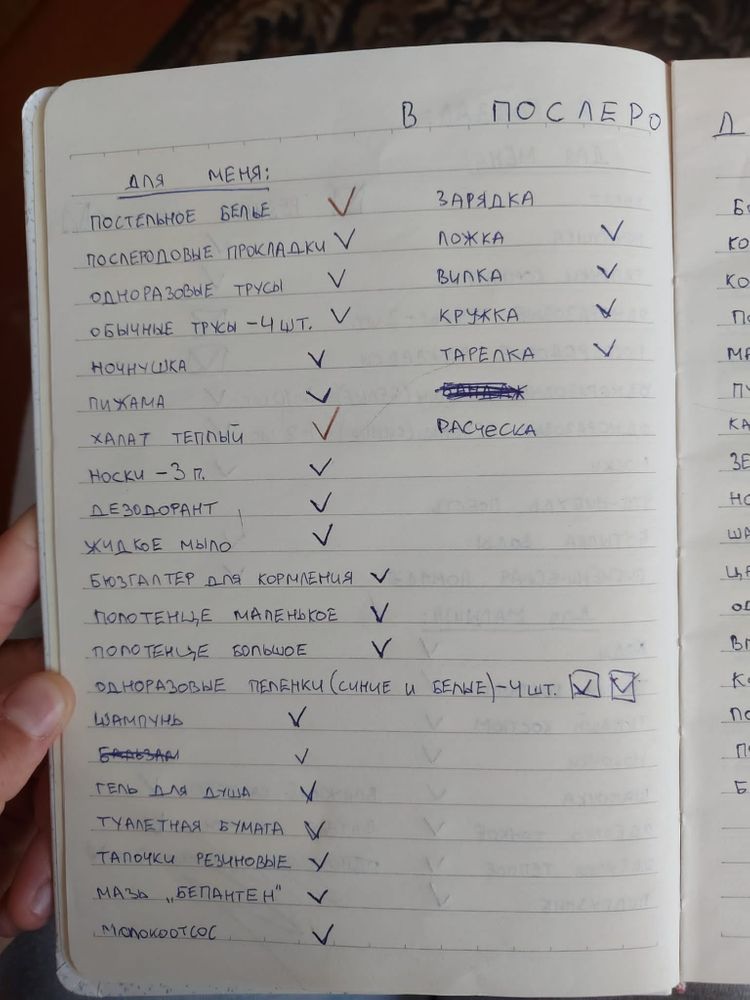 В ПОСЛЕРО
ДЛЯ МЕНЯ:
ПОСТЕЛЬНОЕ БЕЛЬЕ
ПОСЛЕРОДОВЫЕ ПРОКЛАДКИ
ОДНОРАЗОВЫЕ ТРУСЫ
ОБЫЧНЫЕ ТРУСЫ – 4 ШТ.
НОЧНУШКА
ПИЖАМА
ХАЛАТ ТЕПЛЫЙ
НОСКИ – 3 П.
ДЕЗОДОРАНТ
ЖИДКОЕ МЫЛО
БЮЗГАЛТЕР ДЛЯ КОРМЛЕНИЯ
ПОЛОТЕНЦЕ МАЛЕНЬКОЕ
ПОЛОТЕНЦЕ БОЛЬШОЕ
ОДНОРАЗОВЫЕ ПЕЛЕНКИ (СИНИЕ И БЕЛЫЕ) – 4 ШТ.
ШАМПУНЬ
БАЛЬЗАМ
ГЕЛЬ ДЛЯ ДУША
ТУАЛЕТНАЯ БУМАГА
ТАПОЧКИ РЕЗИНОВЫЕ
МАЗЬ „БЕПАНТЕН"
МОЛОКООТСОС
ЗАРЯДКА
ЛОЖКА
ВИЛКА
КРУЖКА
ТАРЕЛКА
РАСЧЕСКА